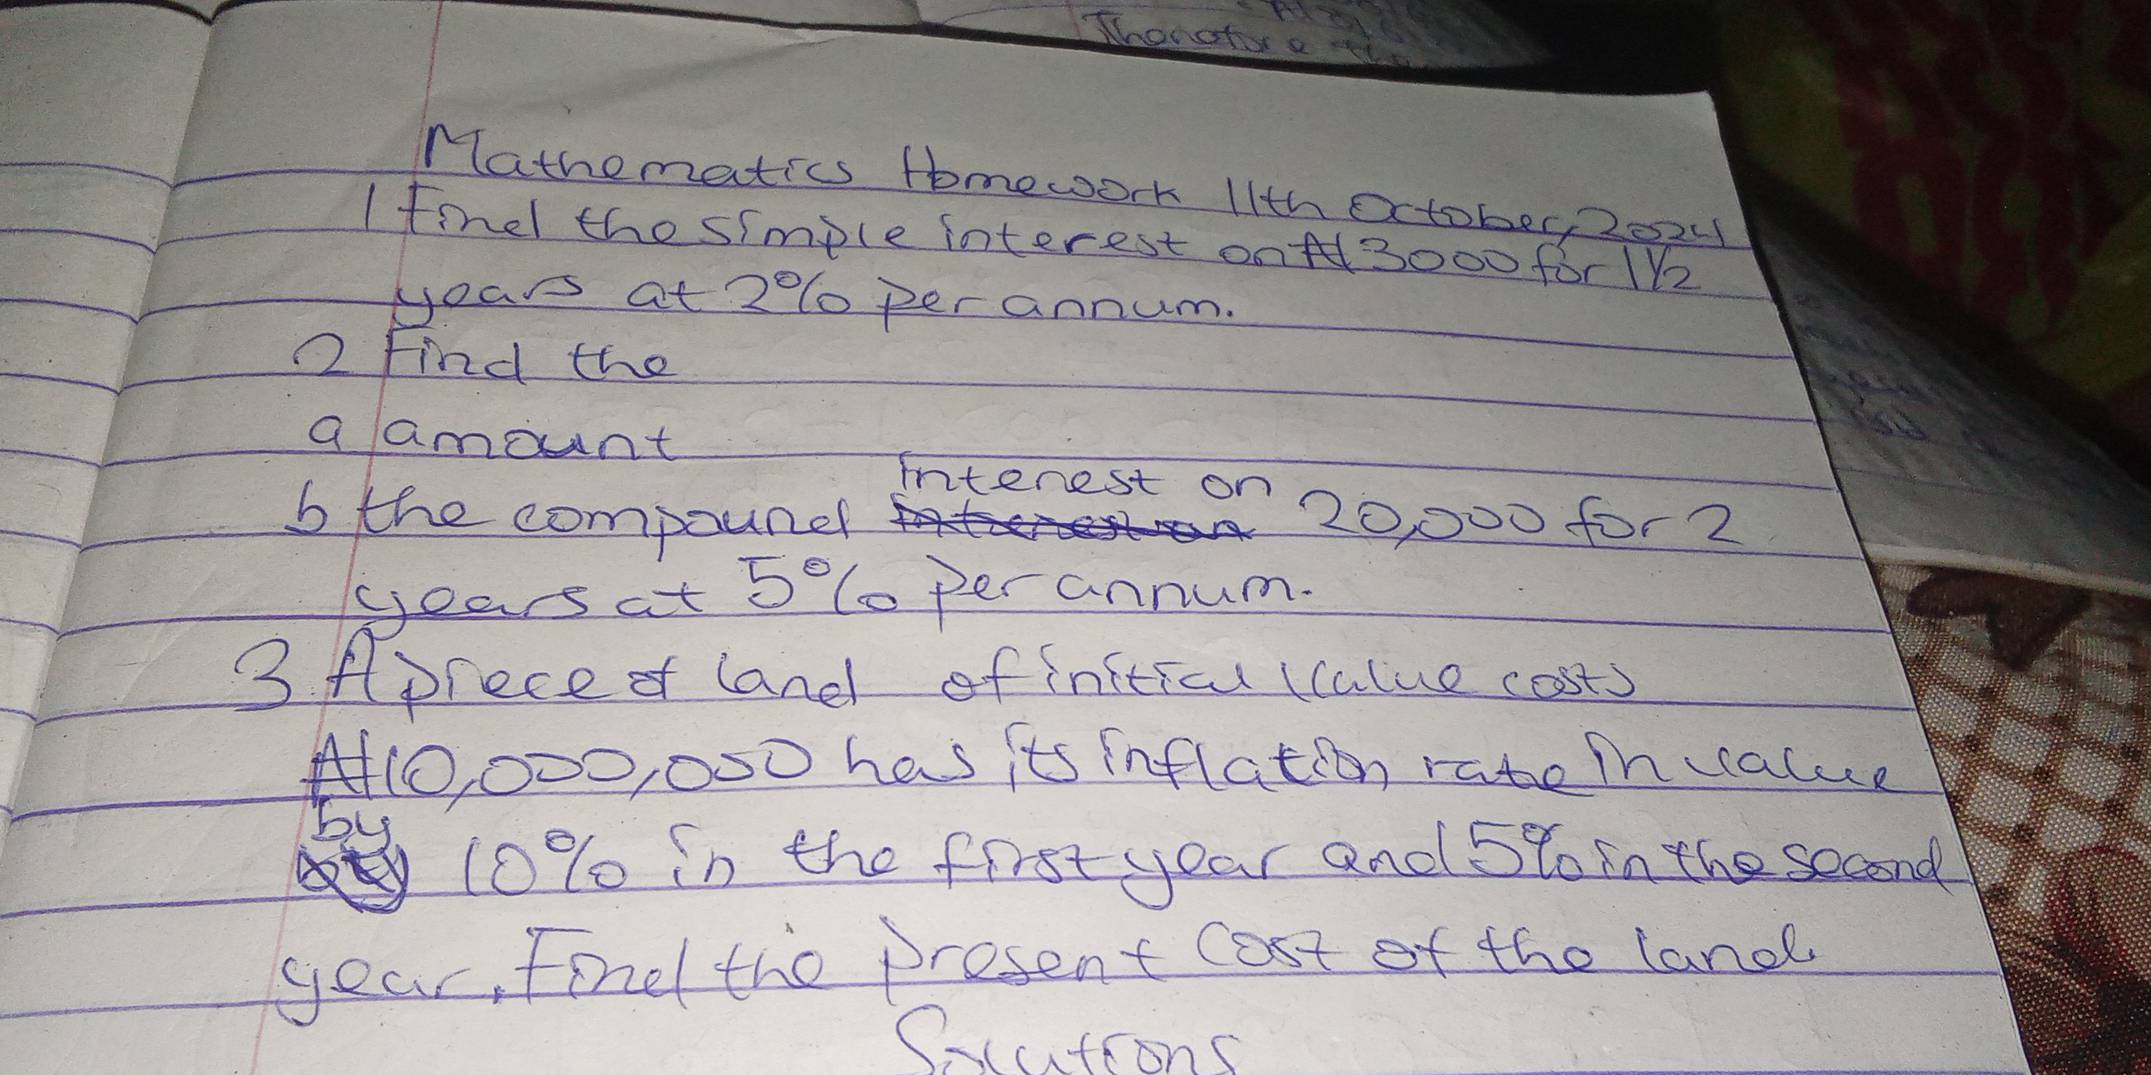 Thenefore the
Mathematics Homework 11th October, 2024
1 Find the simple interest on ₦3000 for 1 1/2
years at 2% per annum.
2 Find the
a amount
b the compound interest on 20,000 for 2
years at 5% per annum.
3 A piece of land of initial value costs
₦10,000,000 has its inflation rate in value
by 10% in the first year and 5% in the second
year. Find the present cost of the land.
Solutions